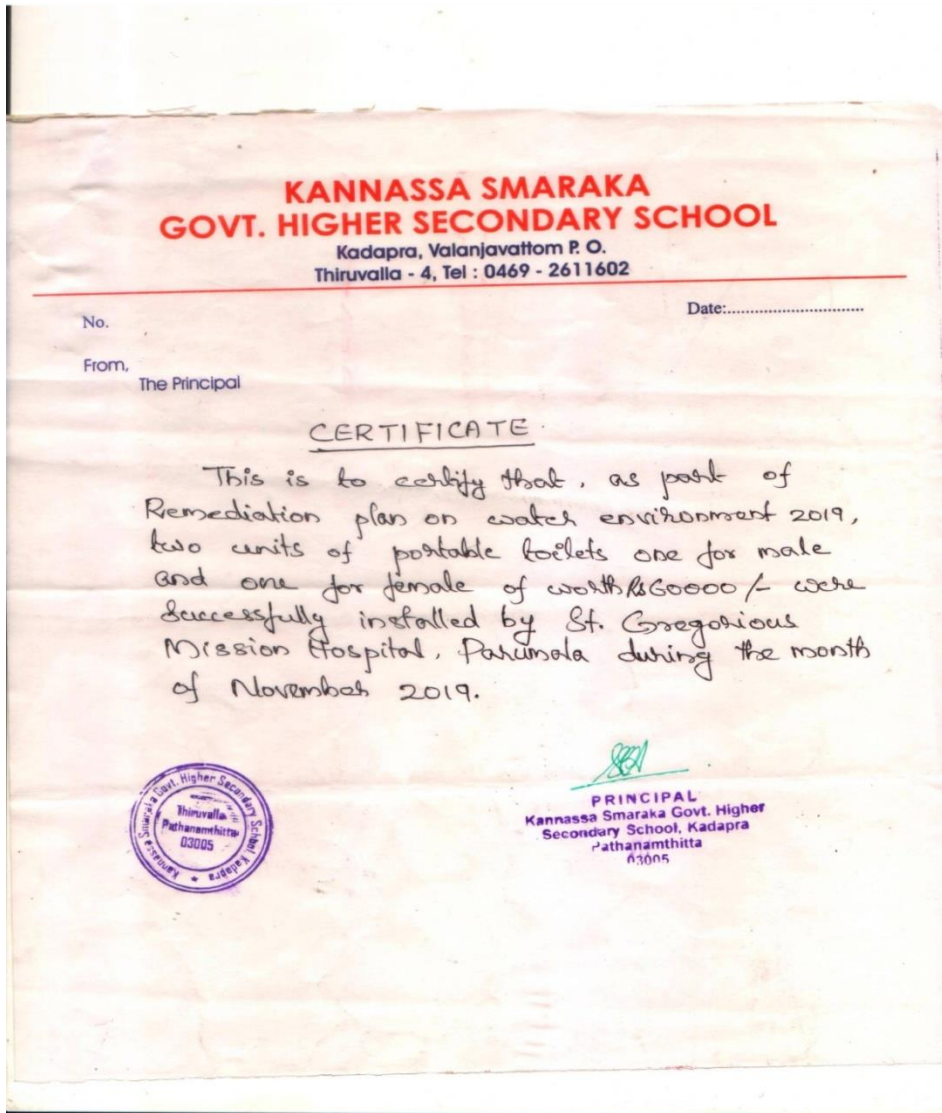 KANNASSA SMARAKA
GOVT. HIGHER SECONDARY SCHOOL
Kadapra, Valanjavattom P. O.
Thiruvalla - 4, Tel : 0469 - 2611602
Date:..............................
No.
From,
The Principal
CERTIFICATE
This is to certify that, as part of
Remediation plan on water environment 2019,
two units of portable toilets one for male
and one for female of worth Rs 60000/- were
successfully installed by St. Gregorious
Mission Hospital, Parumala during the month
of November 2019.
Kannassa Smaraka Govt. Higher Secondary School Kadapra
Thiruvalla
Pathanamthitta
03005
PRINCIPAL
Kannassa Smaraka Govt. Higher
Secondary School, Kadapra
Pathanamthitta
03005